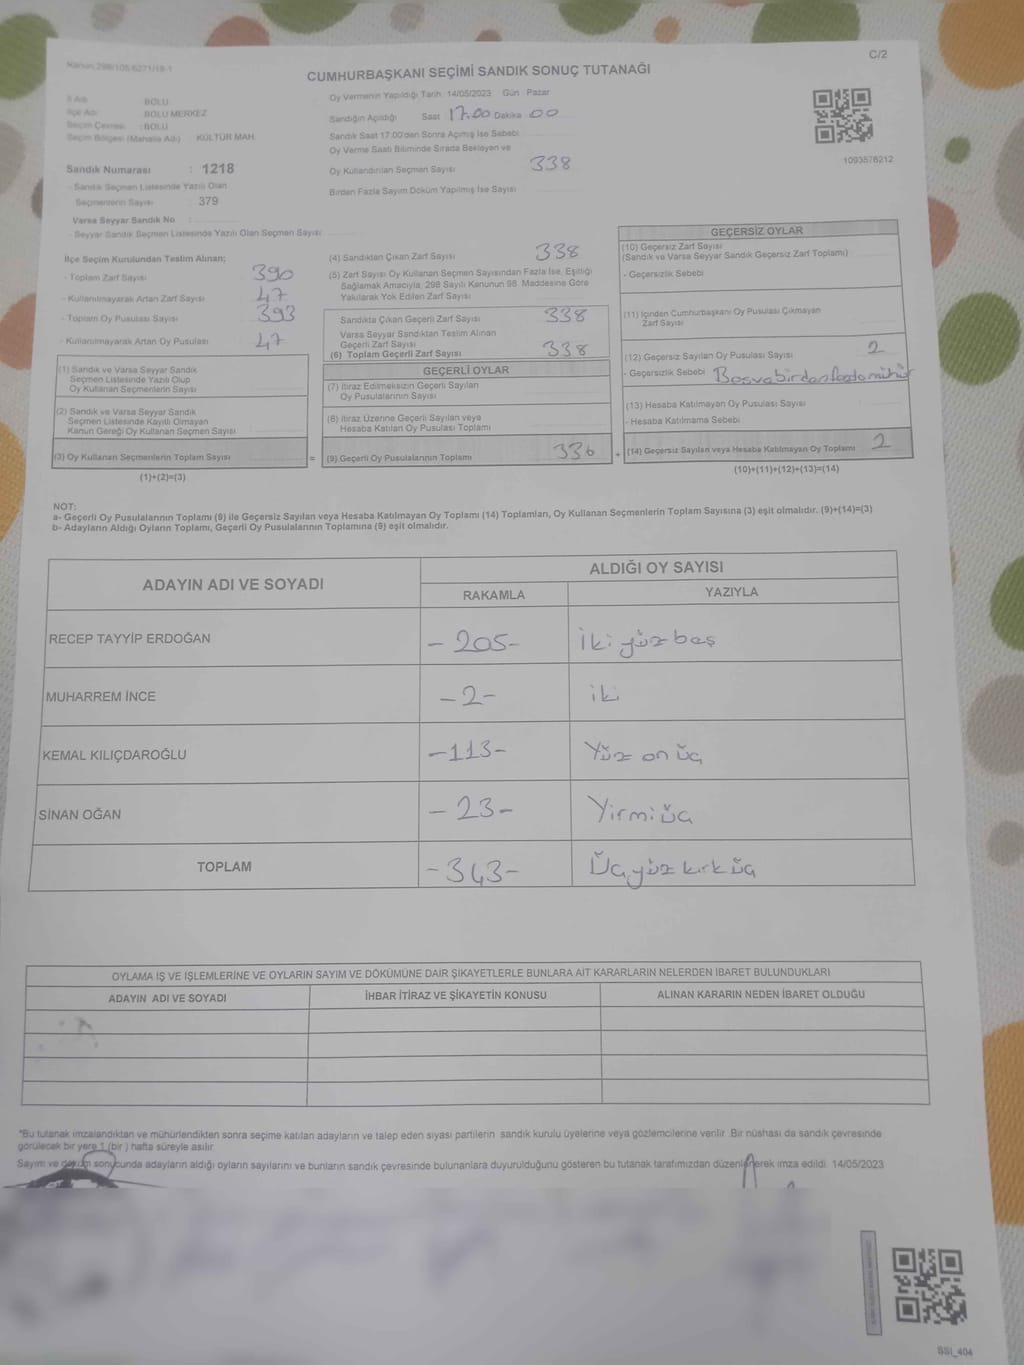 Kanun:298/105-6271/18-1
C/2
CUMHURBAŞKANI SEÇİMİ SANDIK SONUÇ TUTANAĞI
İl Adı : BOLU
İlçe Adı : BOLU MERKEZ
Seçim Çevresi : BOLU
Seçim Bölgesi (Mahalle Adı) : KÜLTÜR MAH.
Sandık Numarası : 1218
- Sandık Seçmen Listesinde Yazılı Olan
Seçmenlerin Sayısı : 379
Varsa Seyyar Sandık No :
- Seyyar Sandık Seçmen Listesinde Yazılı Olan Seçmen Sayısı
Oy Vermenin Yapıldığı Tarih: 14/05/2023 Gün : Pazar
Sandığın Açıldığı Saat 17.00 Dakika 00
Sandık Saat 17:00'den Sonra Açılmış İse Sebebi
Oy Verme Saati Bitiminde Sırada Bekleyen ve
Oy Kullandırılan Seçmen Sayısı 338
Birden Fazla Sayım Döküm Yapılmış İse Sayısı
1093578212
İlçe Seçim Kurulundan Teslim Alınan;
- Toplam Zarf Sayısı 390
- Kullanılmayarak Artan Zarf Sayısı 47
- Toplam Oy Pusulası Sayısı 393
- Kullanılmayarak Artan Oy Pusulası 47
(1) Sandık ve Varsa Seyyar Sandık
Seçmen Listesinde Yazılı Olup
Oy Kullanan Seçmenlerin Sayısı
(2) Sandık ve Varsa Seyyar Sandık
Seçmen Listesinde Kayıtlı Olmayan
Kanun Gereği Oy Kullanan Seçmen Sayısı
(3) Oy Kullanan Seçmenlerin Toplam Sayısı =
(1)+(2)=(3)
(4) Sandıktan Çıkan Zarf Sayısı 338
(5) Zarf Sayısı Oy Kullanan Seçmen Sayısından Fazla İse, Eşitliği
Sağlamak Amacıyla, 298 Sayılı Kanunun 98. Maddesine Göre
Yakılarak Yok Edilen Zarf Sayısı
Sandıkta Çıkan Geçerli Zarf Sayısı 338
Varsa Seyyar Sandıktan Teslim Alınan
Geçerli Zarf Sayısı
(6) Toplam Geçerli Zarf Sayısı 338
GEÇERLİ OYLAR
(7) İtiraz Edilmeksizin Geçerli Sayılan
Oy Pusulalarının Sayısı
(8) İtiraz Üzerine Geçerli Sayılan veya
Hesaba Katılan Oy Pusulası Toplamı
(9) Geçerli Oy Pusulalarının Toplamı 336 +
GEÇERSİZ OYLAR
(10) Geçersiz Zarf Sayısı
(Sandık ve Varsa Seyyar Sandık Geçersiz Zarf Toplamı)
- Geçersizlik Sebebi
(11) İçinden Cumhurbaşkanı Oy Pusulası Çıkmayan
Zarf Sayısı
(12) Geçersiz Sayılan Oy Pusulası Sayısı 2
- Geçersizlik Sebebi Boş ve birden fazla mühür
(13) Hesaba Katılmayan Oy Pusulası Sayısı
- Hesaba Katılmama Sebebi
(14) Geçersiz Sayılan veya Hesaba Katılmayan Oy Toplamı 2
(10)+(11)+(12)+(13)=(14)
NOT:
a- Geçerli Oy Pusulalarının Toplamı (9) ile Geçersiz Sayılan veya Hesaba Katılmayan Oy Toplamı (14) Toplamları, Oy Kullanan Seçmenlerin Toplam Sayısına (3) eşit olmalıdır. (9)+(14)=(3)
b- Adayların Aldığı Oyların Toplamı, Geçerli Oy Pusulalarının Toplamına (9) eşit olmalıdır.
ADAYIN ADI VE SOYADI
ALDIĞI OY SAYISI
RAKAMLA YAZIYLA
RECEP TAYYİP ERDOĞAN -205- İki yüz beş
MUHARREM İNCE -2- iki
KEMAL KILIÇDAROĞLU -113- Yüz on üç
SİNAN OĞAN -23- Yirmi üç
TOPLAM -343- Üç yüz kırk üç
OYLAMA İŞ VE İŞLEMLERİNE VE OYLARIN SAYIM VE DÖKÜMÜNE DAİR ŞİKAYETLERLE BUNLARA AİT KARARLARIN NELERDEN İBARET BULUNDUKLARI
ADAYIN ADI VE SOYADI İHBAR İTİRAZ VE ŞİKAYETİN KONUSU ALINAN KARARIN NEDEN İBARET OLDUĞU
*Bu tutanak imzalandıktan ve mühürlendikten sonra seçime katılan adayların ve talep eden siyasi partilerin sandık kurulu üyelerine veya gözlemcilerine verilir. Bir nüshası da sandık çevresinde
görülecek bir yere 1 (bir) hafta süreyle asılır.
Sayım ve döküm sonucunda adayların aldığı oyların sayılarını ve bunların sandık çevresinde bulunanlara duyurulduğunu gösteren bu tutanak tarafımızdan düzenlenerek imza edildi. 14/05/2023
SSI_404